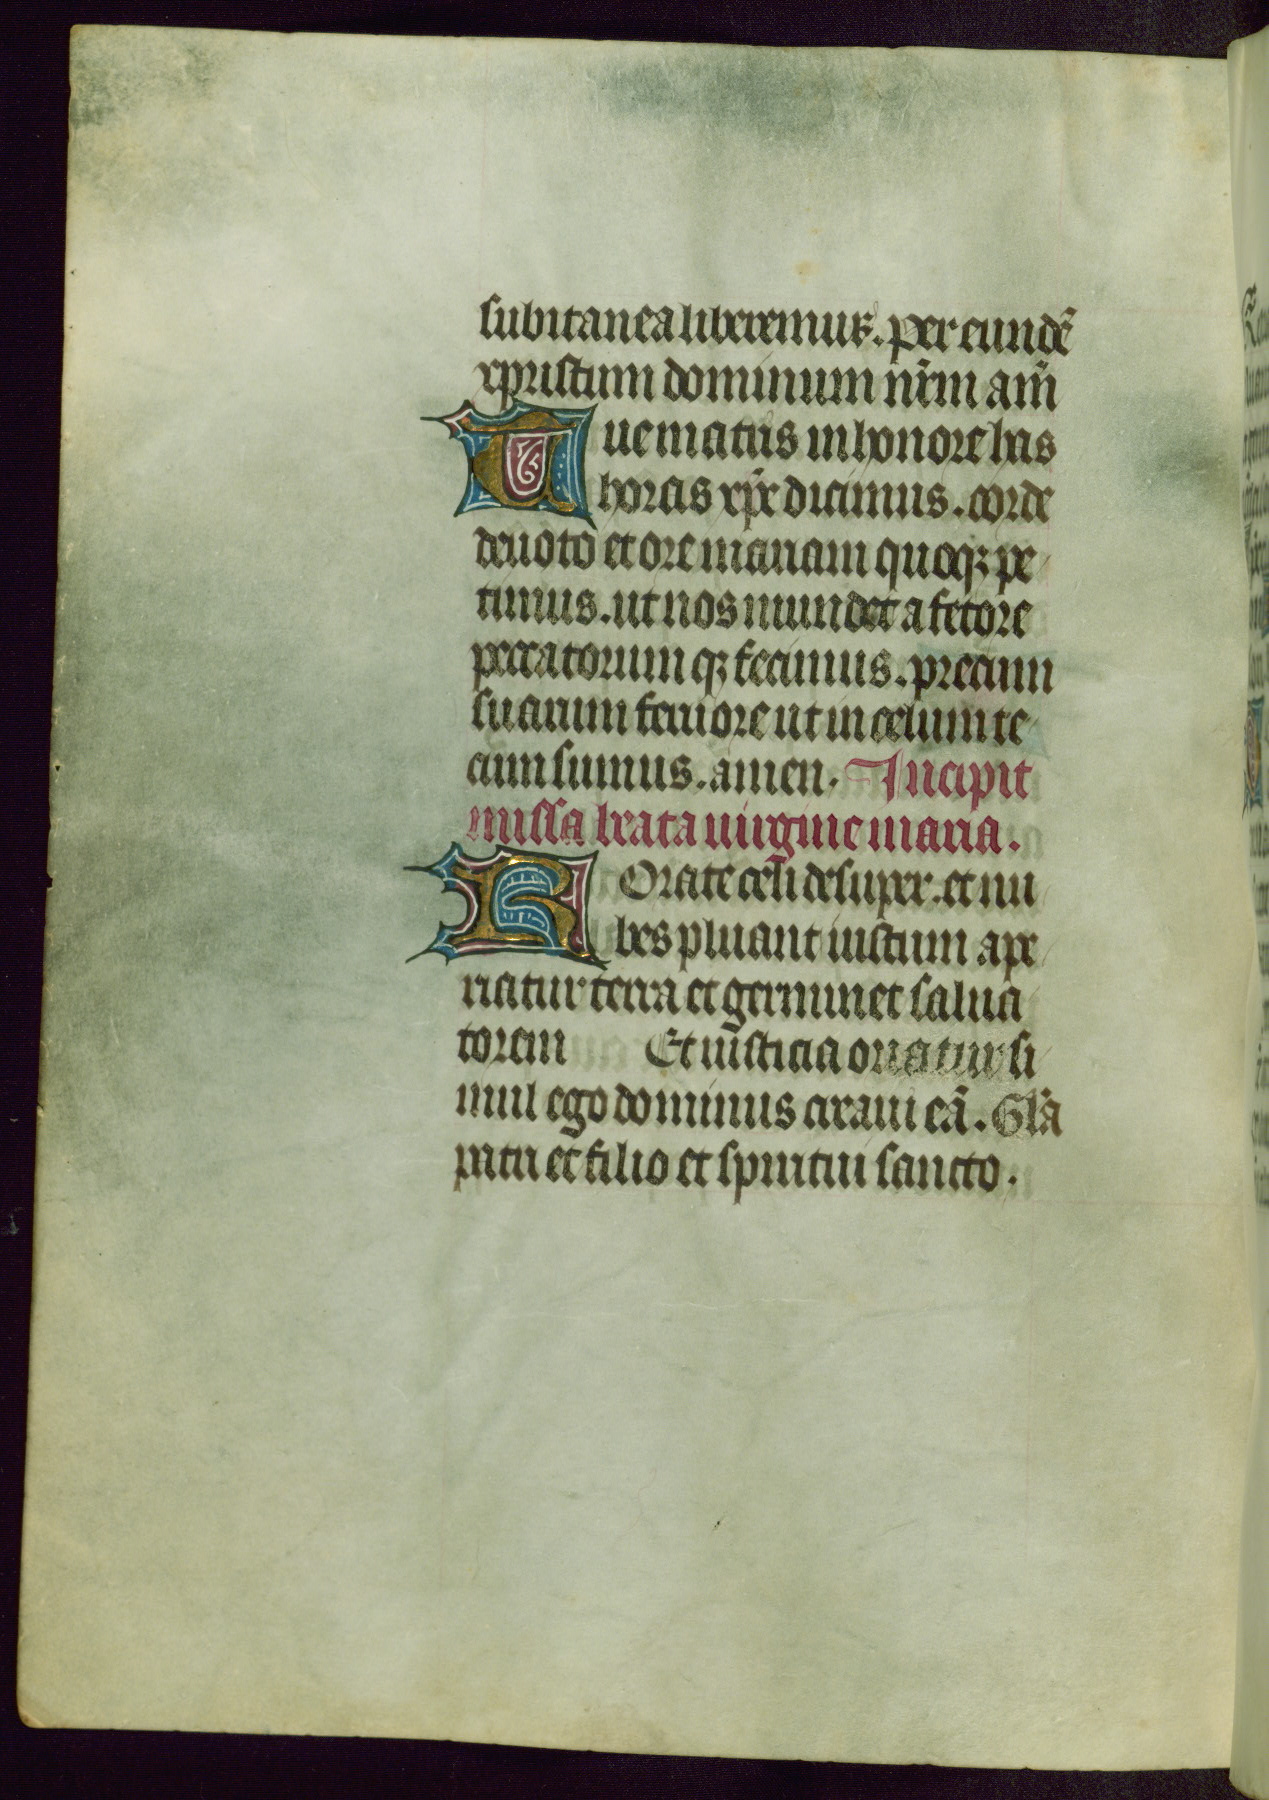 subitanea liberemur. per eundē
xpristum dominum nr̄m am̄
Tue matris in honore has
horas xp̄e dicimus. corde
deuoto et ore mariam quoqꝫ pe
timus. ut nos mundet a fetore
peccatorum qꝫ fecimus. precum
suarum feruore ut in celum te
cum sumus. amen. Incipit
missa beata uirgine maria.
ROrate celi desuper. et nu
bes pluant iustum ape
riatur terra et germinet salua
torem Et iusticia oriatur si
mul ego dominus creaui eā. Gl̄a
patri et filio et spiritui sancto.